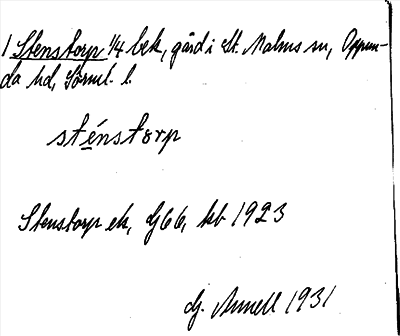 1 Stenstorp 1/4 bek, gård i St. Malms sn, Oppun-
da hd, Sörml. l.
sténstorp
Stenstorp ek, G66, kb 1923
G. Annell 1931